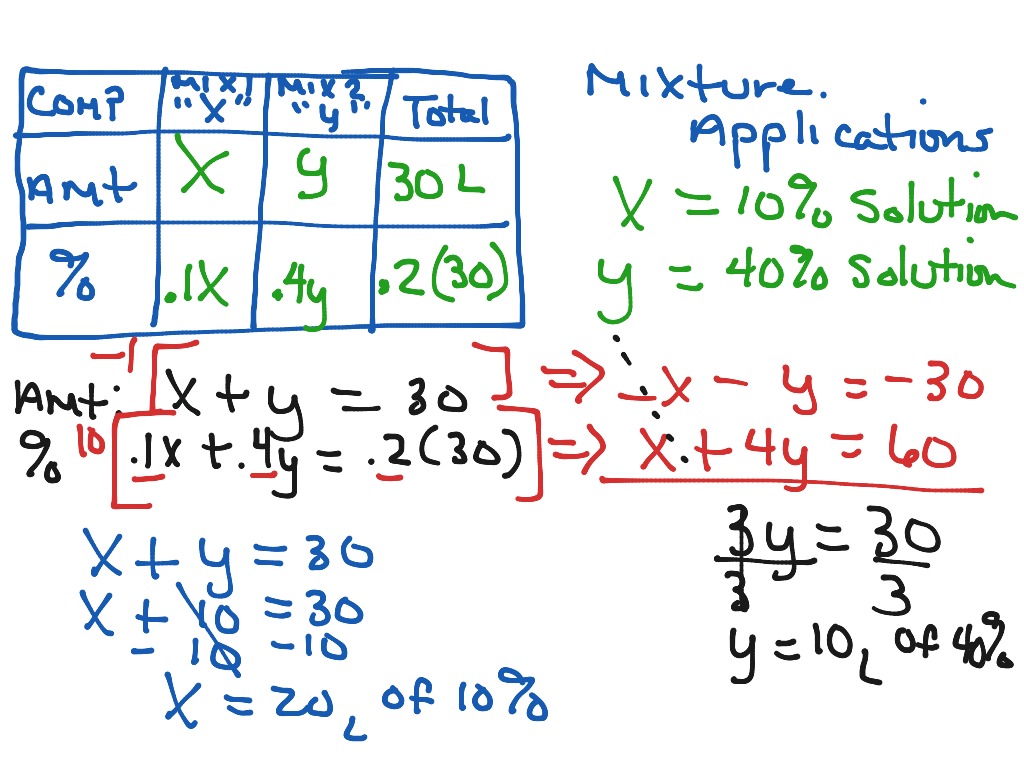 Mixture Applications
COMP MIX 1 "X" MIX 2 "y" Total
AMt X y 30 L
% .1X .4y .2(30)
X = 10% Solution
y = 40% Solution
-1
AMt: [X + y = 30] => -x - y = -30
% 10 [.1X + .4y = .2(30)] => x + 4y = 60
3y = 30
3 3
y = 10 L of 40%
X + y = 30
X + 10 = 30
- 10 -10
X = 20 L of 10%